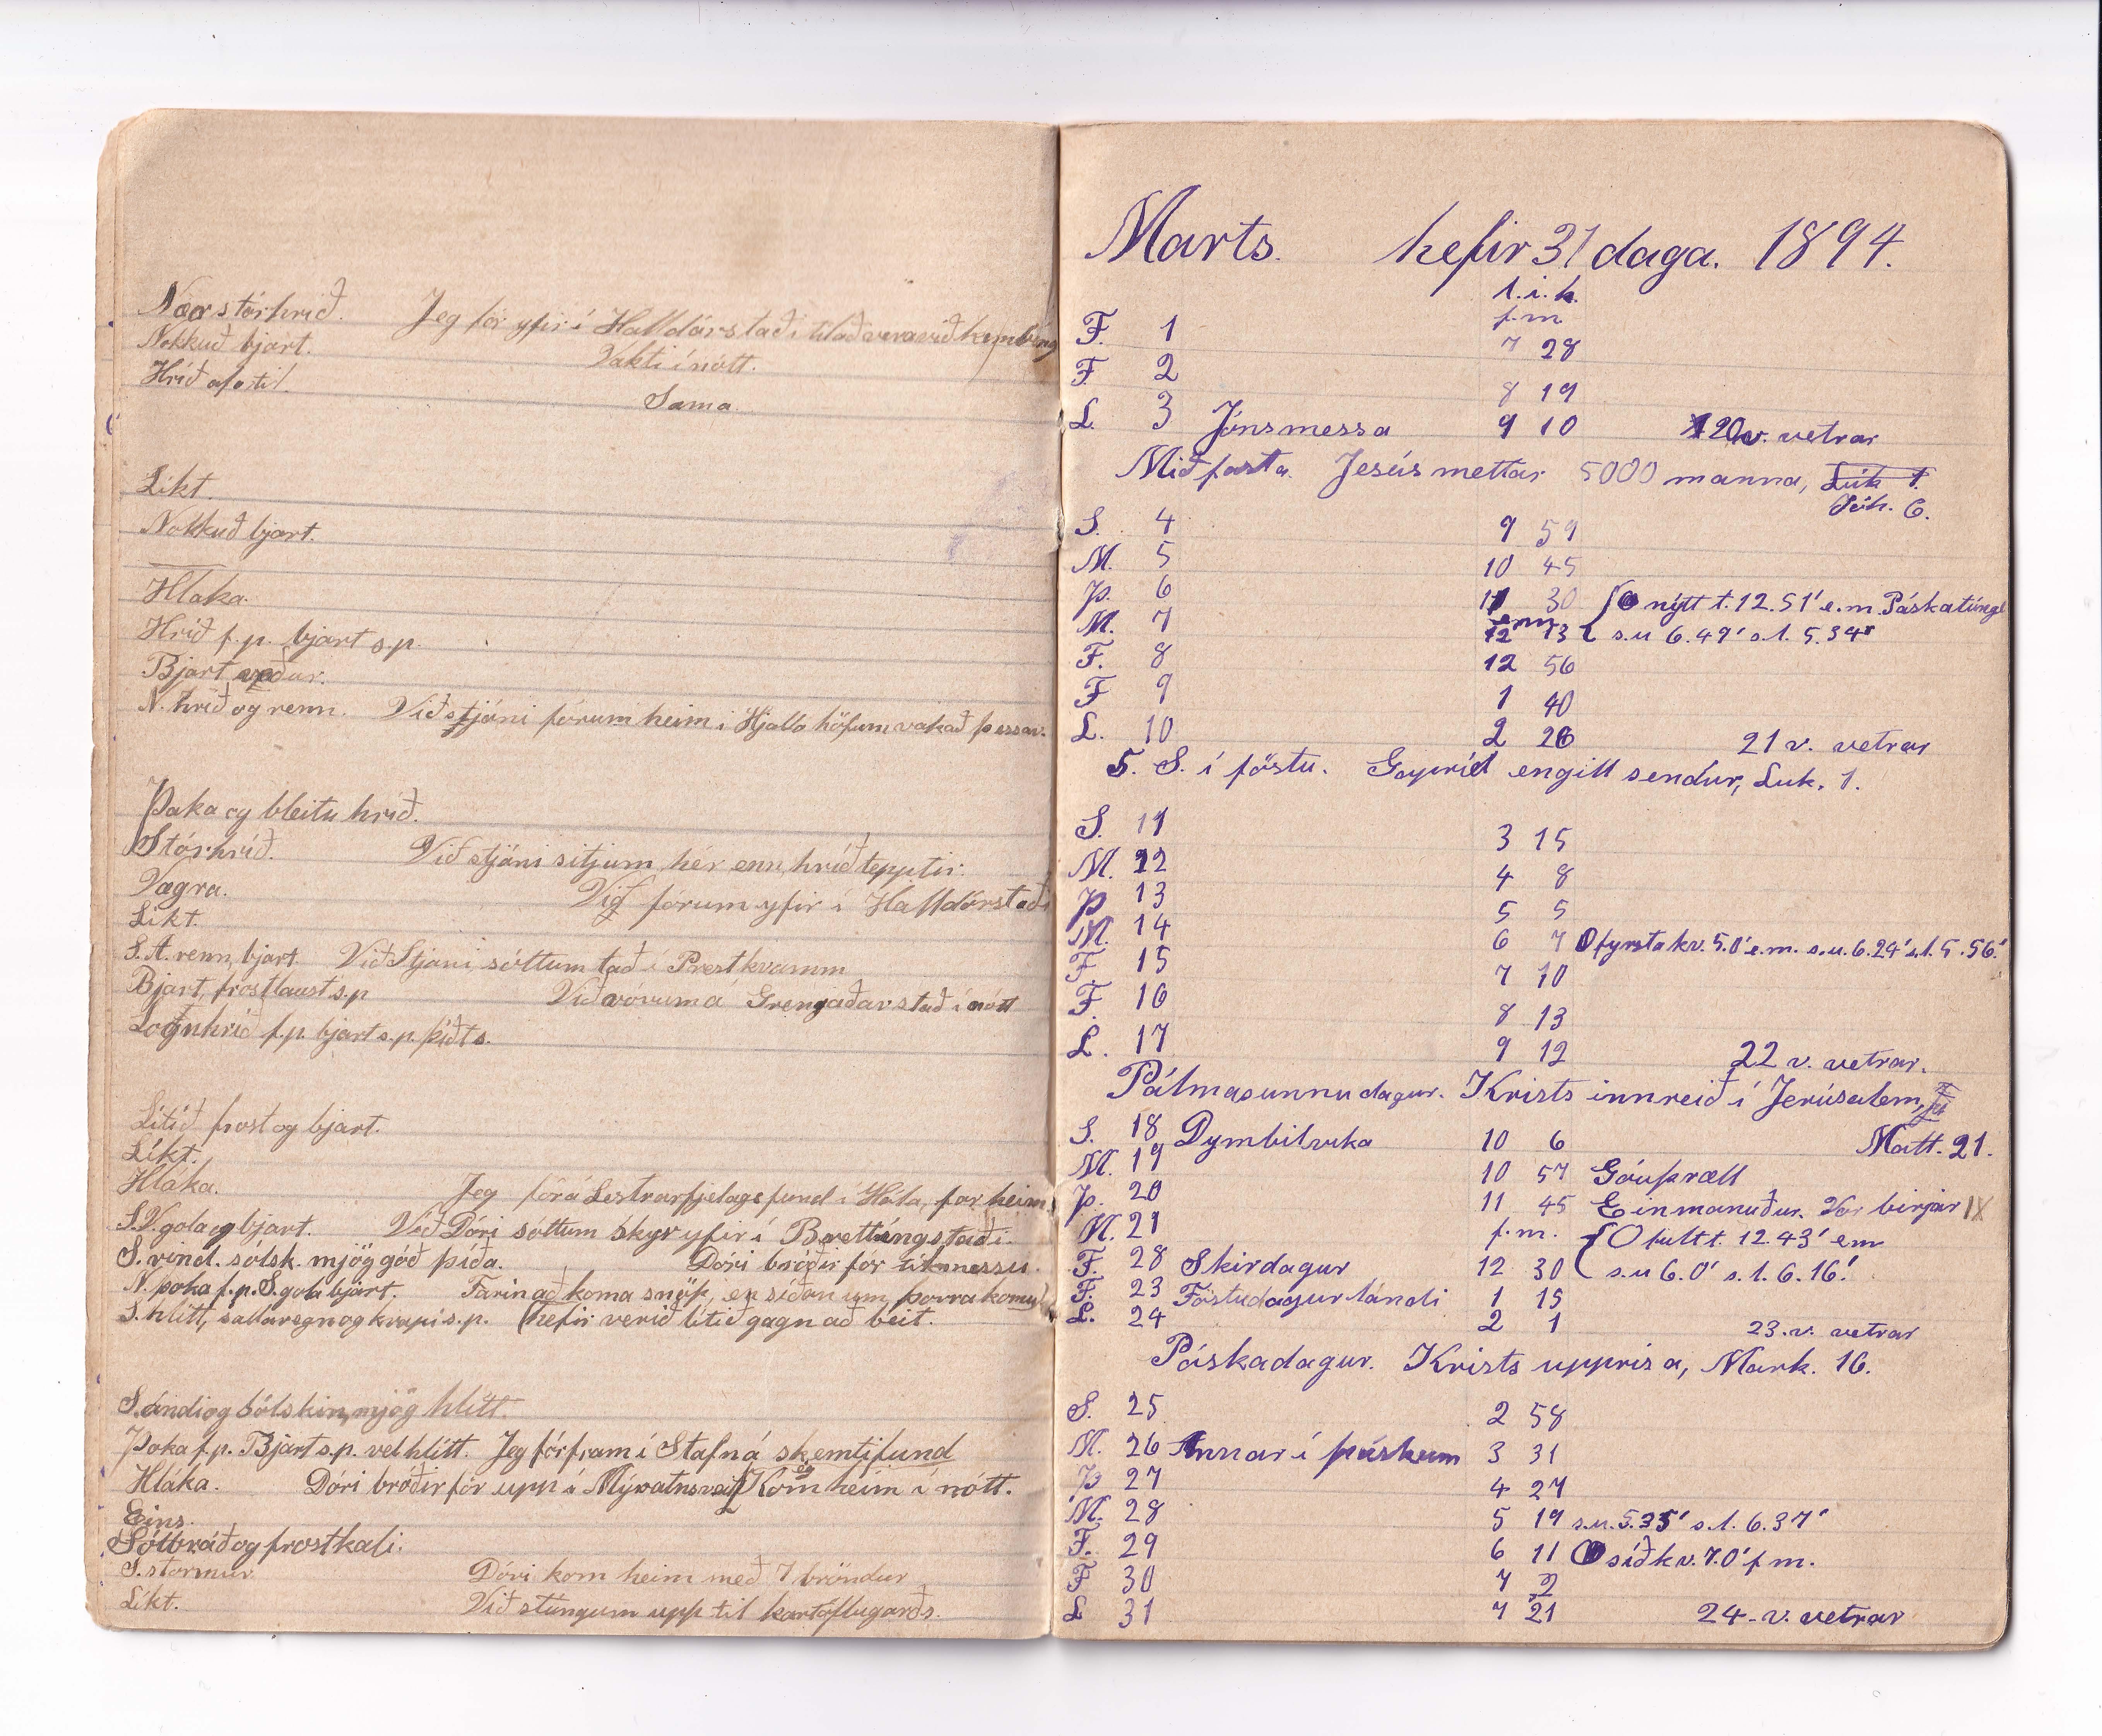 Nær stórhríð. Jeg fór yfir í Halldórstaði til að vera við kymbing
Nokkuð bjart. Vakti í nótt.
Hríð af o til. Sama.
Líkt.
Nokkuð bjart.
Hláka.
Hríð f.p. bjart s.p.
Bjart veður.
N. hríð og renn. Við stjáni fórum heim í Hjalla höfum vakað þessar.
Þaka og bleitu hríð.
Stórhríð. Við stjáni sitjum hér enn, hríðtepptir.
Vægra. Við fórum yfir í Halldórstaði
Líkt.
S.A. renn, bjart. Við Stjáni sóttum tað í Presthvamm
Bjart, frostlaust s.p. Við vórum á Grenjaðarstað í nótt
Lognhríð f.p. bjart s.p. þítt s.
Lítið frost og bjart.
Líkt.
Hláka. Jeg fór á Lestrarfjelagsfund í Hóla, for heim
S.V. gola og bjart. Við Dóri sóttum skyr yfir í Brettingstaði.
S. vind. sólsk. mjög góð þíða. Dóri bróðir fór til messu.
N. þoka f.p. S. gola bjart. Farin að koma snöp, en síðan um þorrakomu
S. hlítt, sallaregn og krapi s.p. (hefir verið lítið gagn að beit.
S. andi og sólskin, mjög hlítt.
Þoka f.p. Bjart s.p. vel hlítt. Jeg fór fram í Stafn á skemtifund
Hláka. Dóri bróðir fór upp í Mývatnsveit Kom ég heim í nótt.
Eins.
Sólbráð og frostkali.
S. stormur Dóri kom heim með 7 bröndur
Líkt. Við stúngum upp til kartöflugarðs.
Marts. hefir 31 daga. 1894.
t. í. h.
f.m.
F. 1 7 28
F 2 8 19
L. 3 Jónsmessa 9 10 20 v. vetrar
Miðfasta. Jesús mettar 5000 manna, Luk 1.
Jóh. 6.
S. 4 9 59
M. 5 10 45
Þ. 6 11 30 nýtt t. 12.51' e.m. Páskatúngl
M. 7 em 12 13 s.u 6.49' s.l. 5.34'
F. 8 12 56
F 9 1 40
L. 10 2 26 21 v. vetrar
5. S. í föstu. Gapríel engill sendur, Luk. 1.
S. 11 3 15
M. 12 4 8
Þ 13 5 5
M. 14 6 7 fyrsta kv. 5.0' e.m. s.u. 6.24' s.l. 5.56'
F 15 7 10
F. 16 8 13
L. 17 9 12 22 v. vetrar.
Pálmasunnudagur. Krists innreið í Jerúsalem,
S. 18 Dymbilvika 10 6 Matt. 21.
M. 19 10 57 Góuþræll
Þ. 20 11 45 Einmánuður. Vor birjar IX
M. 21 f.m. O fullt t. 12.43' em
F. 28 Skirdagur 12 30 s.u 6.0' s.l. 6.16'
F. 23 Föstudagur lándi 1 15
L. 24 2 1 23. v. vetrar
Páskadagur. Krists upprisa, Mark. 16.
S. 25 2 58
M. 26 Annar í páskum 3 31
Þ 27 4 27
M. 28 5 19 s.u. 5.35' s.l. 6.37'
F. 29 6 11 síð kv. 7.0' f m.
F 30 7 2
L 31 7 21 24. v. vetrar